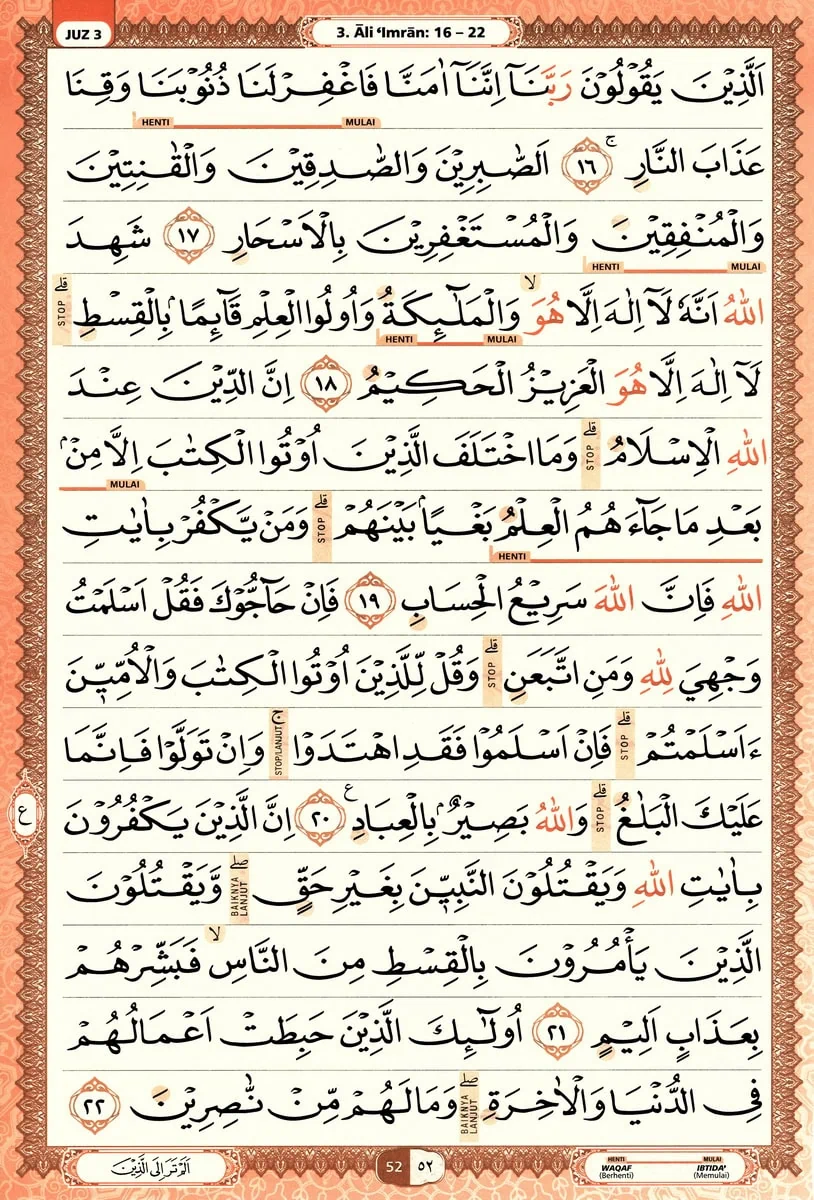 JUZ 3
3. Āli ‘Imrān: 16 – 22
اَلَّذِيْنَ يَقُوْلُوْنَ رَبَّنَآ اِنَّنَآ اٰمَنَّا فَاغْفِرْ لَنَا ذُنُوْبَنَا وَقِنَا
HENTI MULAI
عَذَابَ النَّارِۚ ١٦ اَلصّٰبِرِيْنَ وَالصّٰدِقِيْنَ وَالْقٰنِتِيْنَ
وَالْمُنْفِقِيْنَ وَالْمُسْتَغْفِرِيْنَ بِالْاَسْحَارِ ١٧ شَهِدَ
HENTI MULAI
اللّٰهُ اَنَّهٗ لَآ اِلٰهَ اِلَّا هُوَۙ وَالْمَلٰۤىِٕكَةُ وَاُولُوا الْعِلْمِ قَاۤىِٕمًاۢ بِالْقِسْطِۗ STOP
HENTI MULAI
لَآ اِلٰهَ اِلَّا هُوَ الْعَزِيْزُ الْحَكِيْمُ ١٨ اِنَّ الدِّيْنَ عِنْدَ
اللّٰهِ الْاِسْلَامُۗ STOP وَمَا اخْتَلَفَ الَّذِيْنَ اُوْتُوا الْكِتٰبَ اِلَّا مِنْۢ
MULAI
بَعْدِ مَا جَاۤءَهُمُ الْعِلْمُ بَغْيًاۢ بَيْنَهُمْۗ STOP وَمَنْ يَّكْفُرْ بِاٰيٰتِ
HENTI
اللّٰهِ فَاِنَّ اللّٰهَ سَرِيْعُ الْحِسَابِ ١٩ فَاِنْ حَاۤجُّوْكَ فَقُلْ اَسْلَمْتُ
وَجْهِيَ لِلّٰهِ وَمَنِ اتَّبَعَنِۗ STOP وَقُلْ لِّلَّذِيْنَ اُوْتُوا الْكِتٰبَ وَالْاُمِّيّٖنَ
ءَاَسْلَمْتُمْۗ STOP فَاِنْ اَسْلَمُوْا فَقَدِ اهْتَدَوْاۚ STOP/LANJUT وَاِنْ تَوَلَّوْا فَاِنَّمَا
عَلَيْكَ الْبَلٰغُۗ STOP وَاللّٰهُ بَصِيْرٌۢ بِالْعِبَادِ ٢٠ ع اِنَّ الَّذِيْنَ يَكْفُرُوْنَ
ع
بِاٰيٰتِ اللّٰهِ وَيَقْتُلُوْنَ النَّبِيّٖنَ بِغَيْرِ حَقٍّۖ BAIKNYA LANJUT وَّيَقْتُلُوْنَ
الَّذِيْنَ يَأْمُرُوْنَ بِالْقِسْطِ مِنَ النَّاسِۙ فَبَشِّرْهُمْ
بِعَذَابٍ اَلِيْمٍ ٢١ اُولٰۤىِٕكَ الَّذِيْنَ حَبِطَتْ اَعْمَالُهُمْ
فِى الدُّنْيَا وَالْاٰخِرَةِۖ BAIKNYA LANJUT وَمَا لَهُمْ مِّنْ نّٰصِرِيْنَ ٢٢
اَلَمْ تَرَ اِلَى الَّذِيْنَ
52 ٥٢
HENTI MULAI
WAQAF IBTIDA'
(Berhenti) (Memulai)